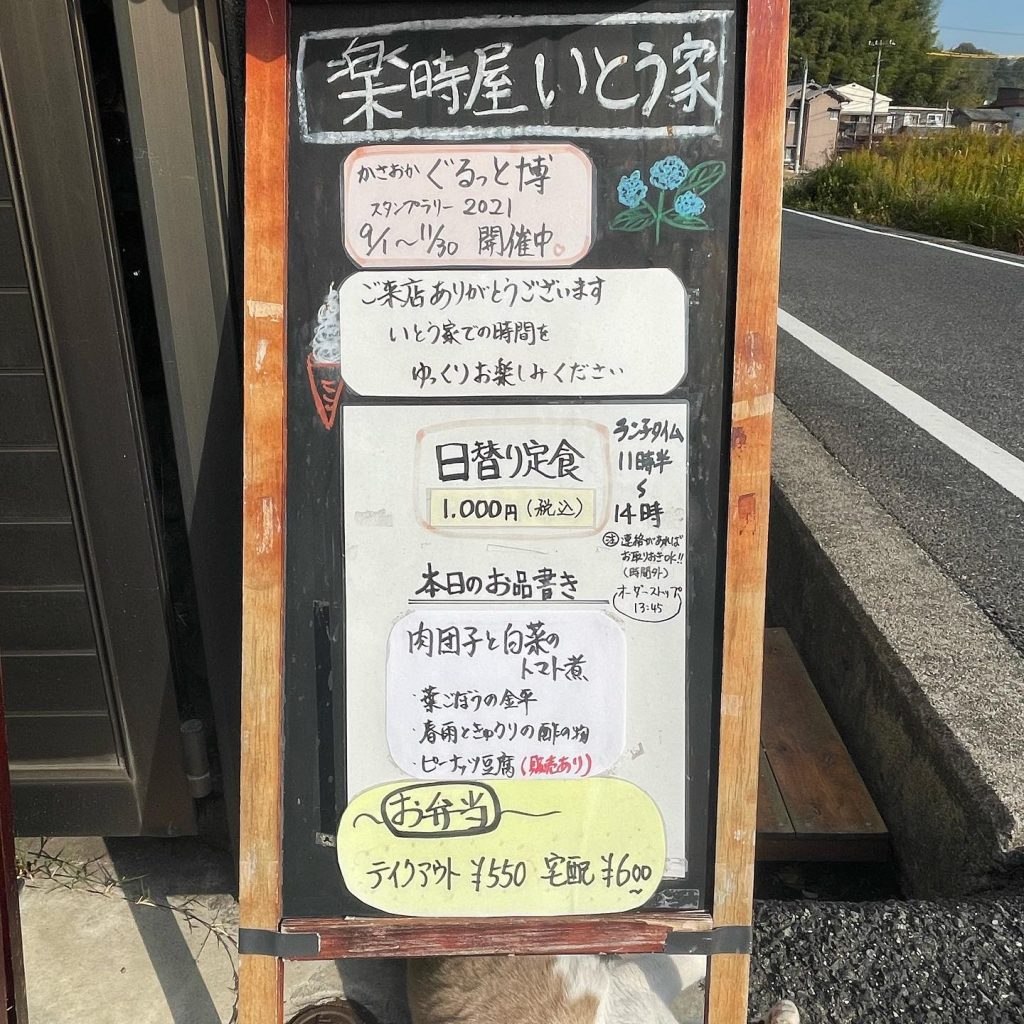 楽時屋 いとう家
かさおか ぐるっと博
スタンプラリー 2021
9/1〜11/30 開催中。
ご来店ありがとうございます
いとう家での時間を
ゆっくりお楽しみください
日替り定食
1.000円(税込)
ランチタイム
11時半
〜
14時
注 連絡があれば
お取りおきOK!!
(時間外)
オーダーストップ
13:45
本日のお品書き
肉団子と白菜の
トマト煮
・葉ごぼうの金平
・春雨ときゅうりの酢の物
・ピーナッツ豆腐(販売あり)
〜お弁当〜
テイクアウト ¥550 宅配 ¥600〜